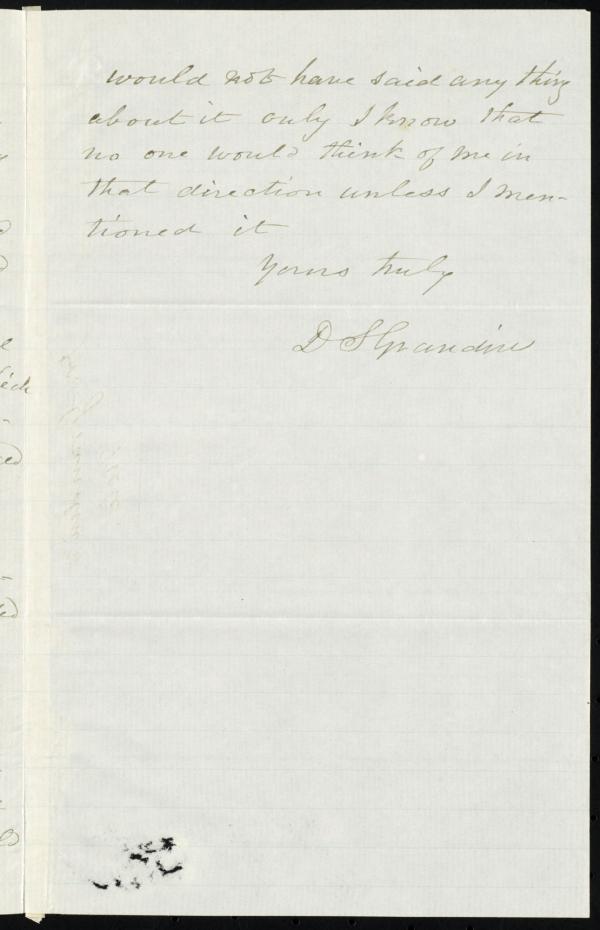 would not have said any thing
about it only I know that
no one would think of me in
that direction unless I men-
tioned it
Yours truly
D S Grandin